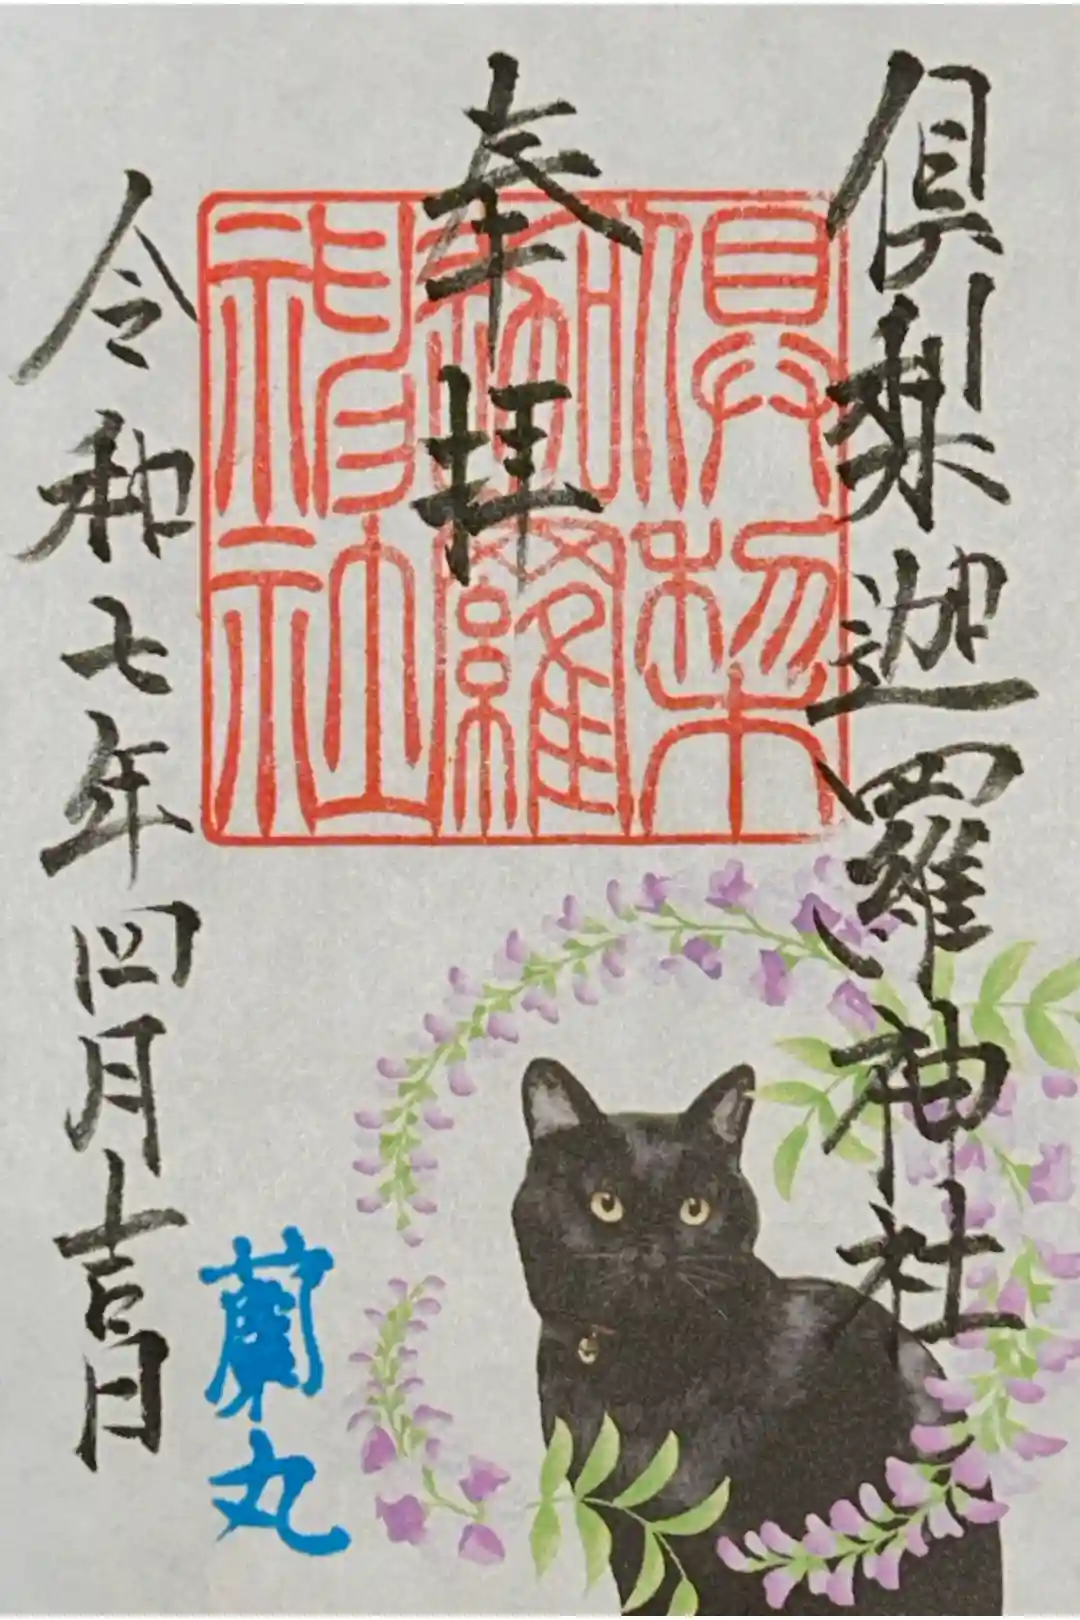 倶梨迦羅神社
奉拝
倶梨
迦羅
神社
令和七年四月吉日
蘭丸